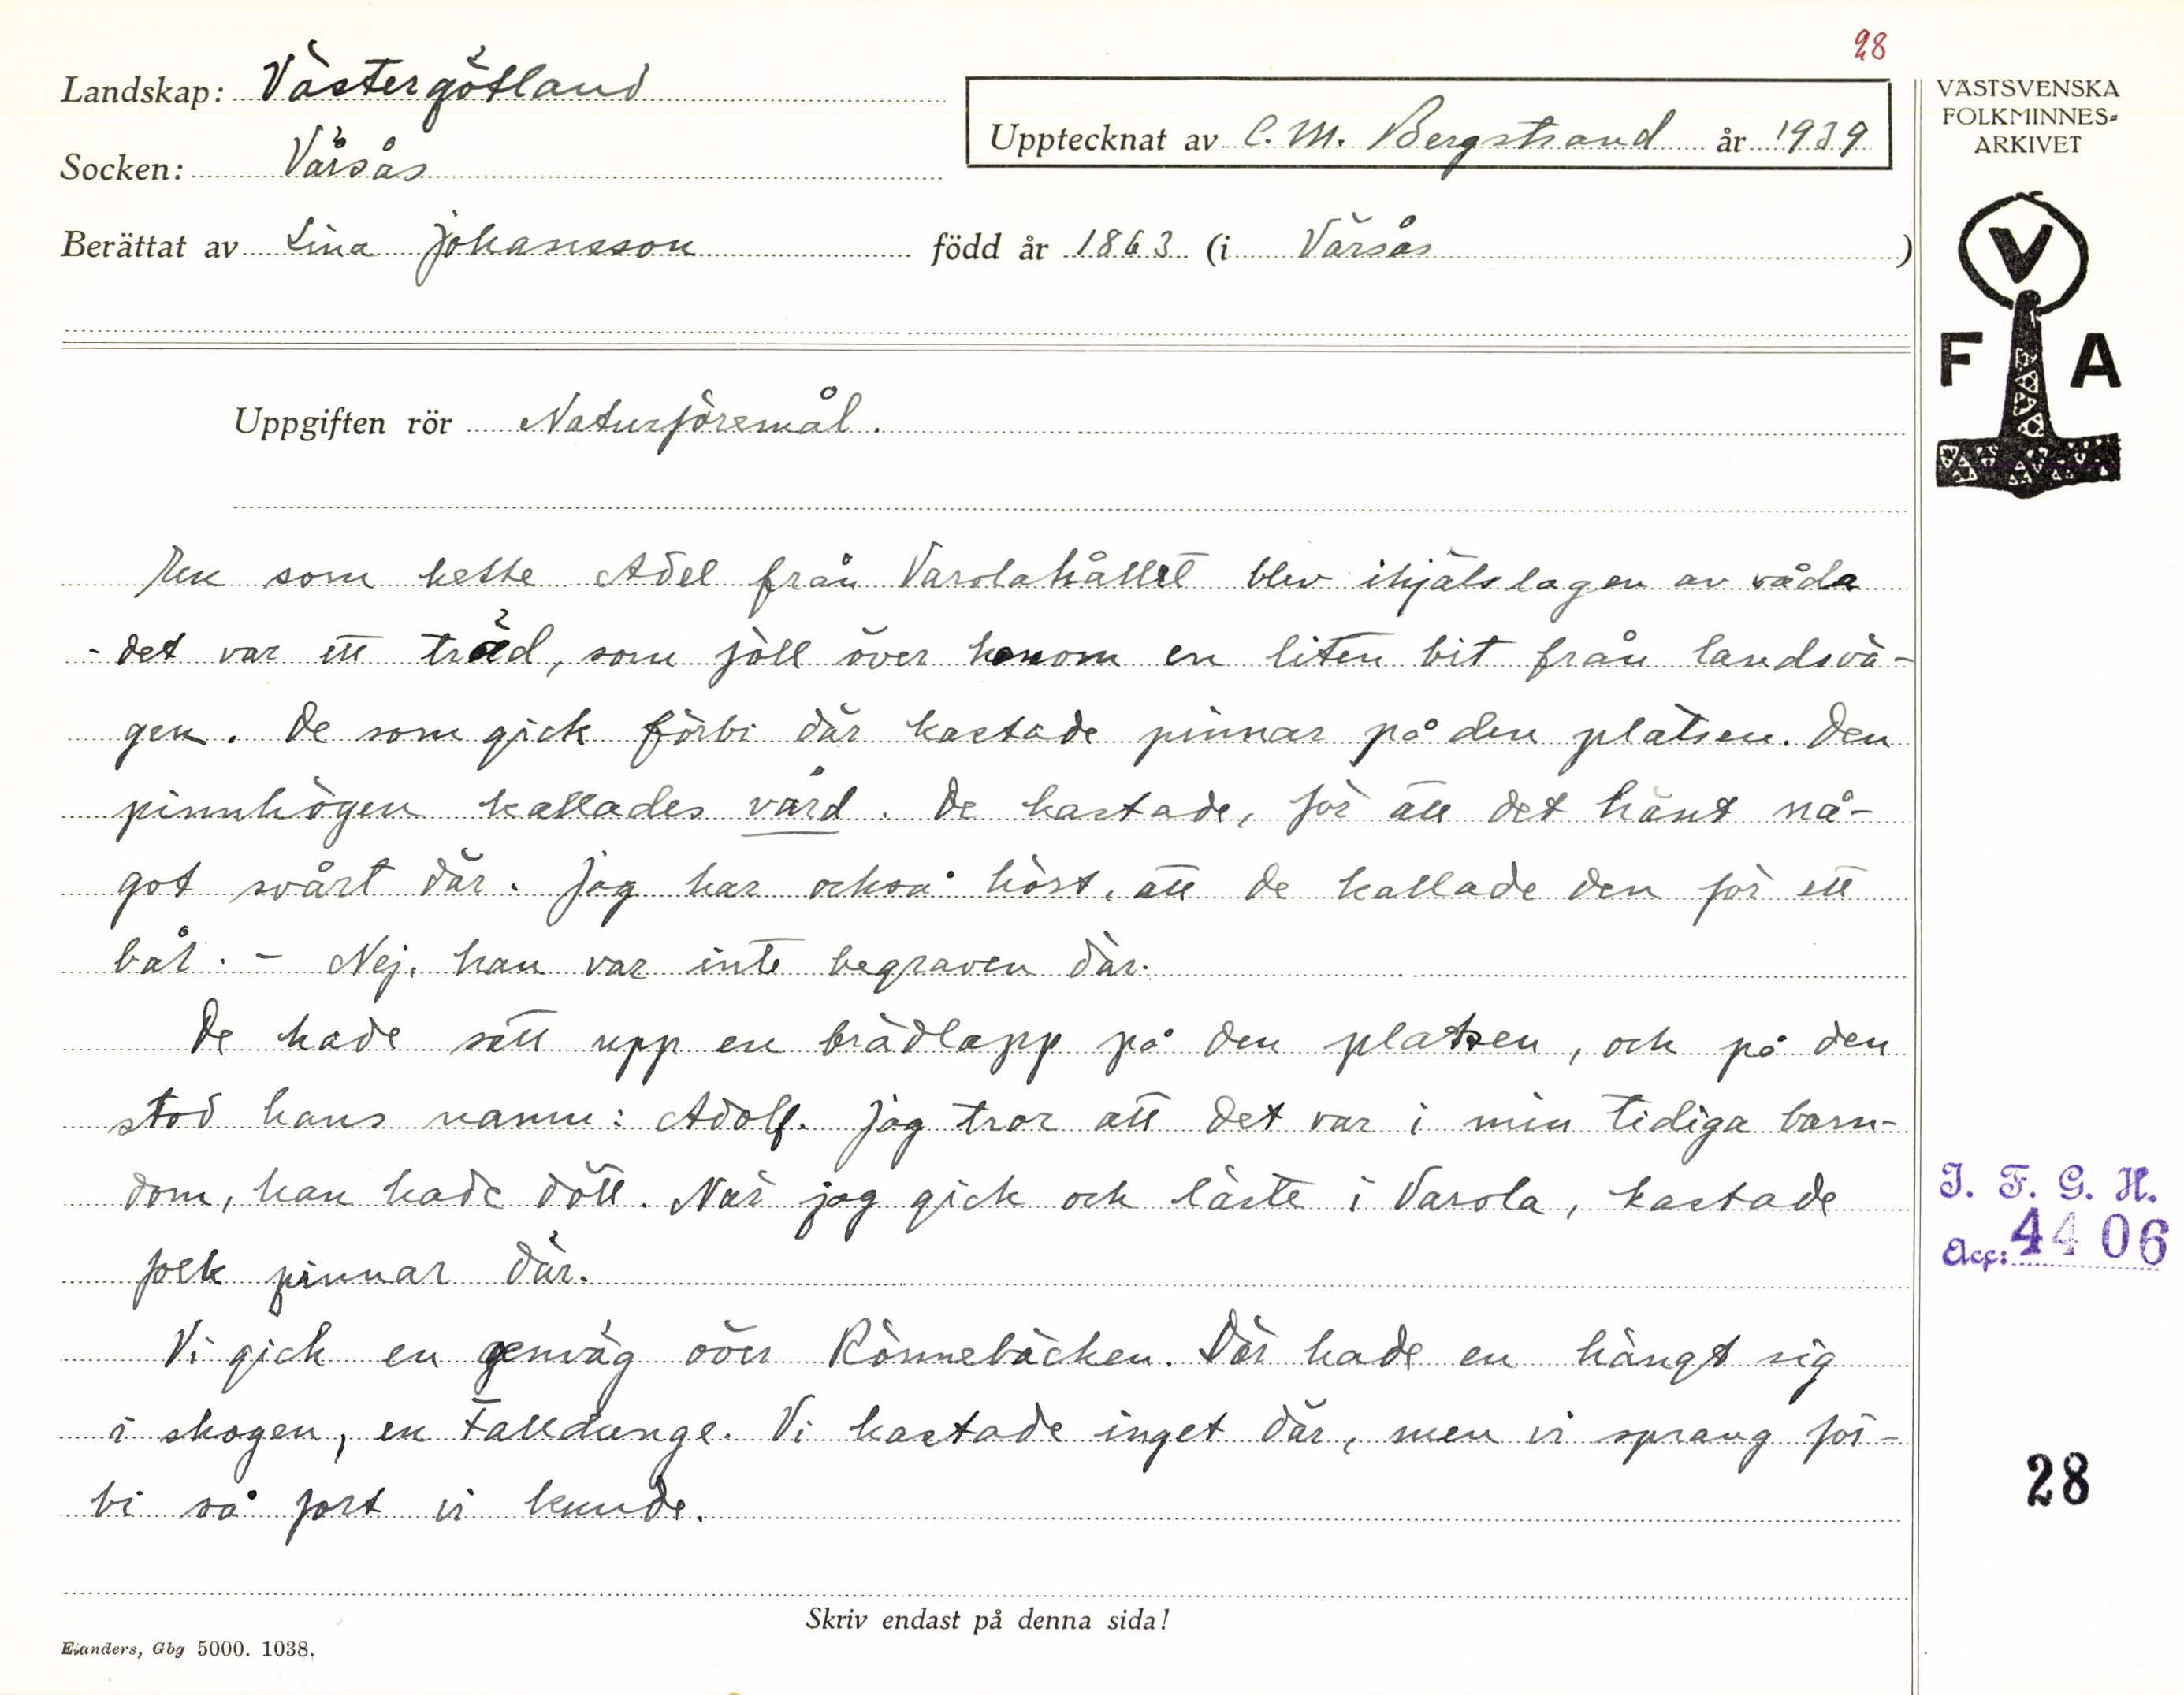 28
Landskap: Västergötland
VÄSTSVENSKA
FOLKMINNES=
ARKIVET
Upptecknat av C. M. Bergstrand år 1939
Socken: Värsås
Berättat av Lina Johansson född år 1863 (i Värsås )
V
F A
Uppgiften rör Naturföremål.
En som hette Adel från Varolahållet blev ihjälslagen av våda
- det var ett träd, som föll över honom en liten bit från landsvä-
gen. De som gick förbi där kastade pinnar på den platsen. Den
pinnhögen kallades vård. De kastade, för att det hänt nå-
got svårt där. Jag har också hört, att de kallade den för ett
bål. - Nej, han var inte begraven där.
De hade satt upp en brädlapp på den platsen, och på den
stod hans namn: Adolf. Jag tror att det var i min tidiga barn-
dom, han hade dött. När jag gick och läste i Varola, kastade
folk pinnar där.
Vi gick en genväg över Rönnebäcken. Där hade en hängt sig
i skogen, en talldunge. Vi kastade inget där, men vi sprang för-
bi så fort vi kunde.
I. F. G. H.
Acc: 4406
28
Skriv endast på denna sida!
Elanders, Gbg 5000. 1038.